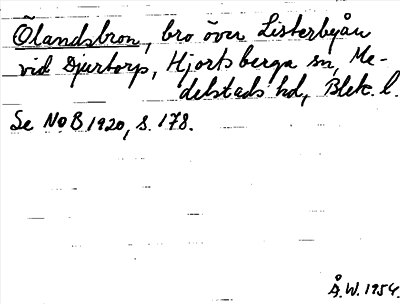 Ölandsbron, bro över Listerbyån
vid Djurtorp, Hjortsberga sn, Me-
delstads hd, Blek. l.
Se NoB 1920, s. 178.
Å.W. 1954.